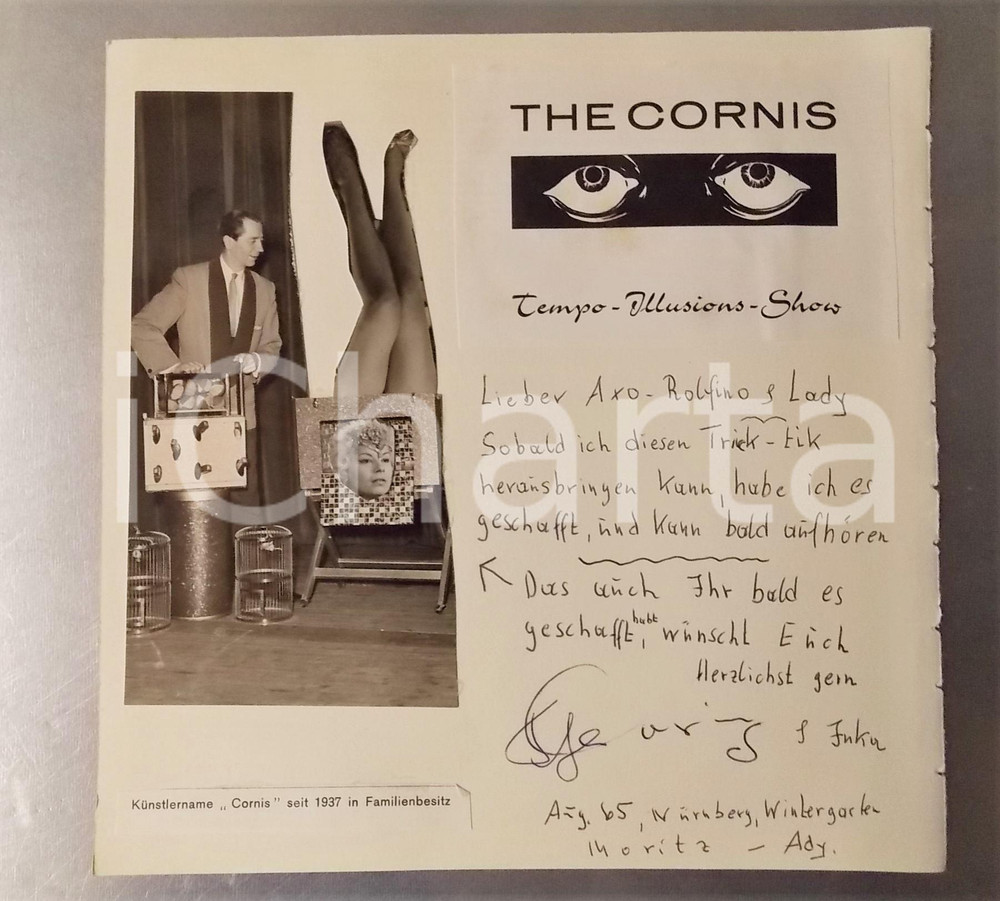 THE CORNIS
Tempo-Illusions-Show
Lieber Axo-Rolfino & Lady
Sobald ich diesen Trick-Tik
herausbringen kann, habe ich es
geschafft, und kann bald aufhören
Das auch Ihr bald es
geschafft habt, wünscht Euch
Herzlichst gern
Aug. 65, Nürnberg, Wintergarten
Moritz - Ady.
Künstlername „Cornis" seit 1937 in Familienbesitz
iCharta